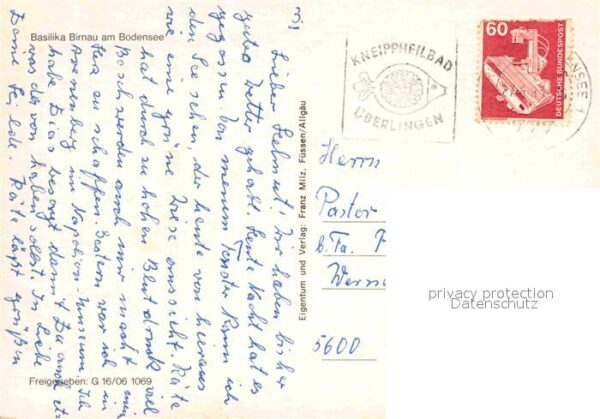 Basilika Birnau am Bodensee
Lieber Helmut! Wir haben bisher
gutes Wetter gehabt. Heute Nacht hat es
gegossen. Von meinem Fenster kann ich
den See sehen, der heute von hier aus
wie eine grüne Wiese aussieht. Käte
hat durch zu hohen Blutdruck viel
Beschwerden auch mir macht
Herz zu schaffen. Gestern war ich in
Arenenberg im Napoleon-Museum. Ich
habe Dias besorgt damit Du auch et-
was davon haben sollst. In Liebe
Deine Käte läßt grüßen
Freigegeben: G 16/06 1069
Eigentum und Verlag: Franz Milz, Füssen/Allgäu
KNEIPPHEILBAD
ÜBERLINGEN
60
DEUTSCHE BUNDESPOST
NSEE 1
Herrn
Pastor
b. Fa.
5600
privacy protection
Datenschutz